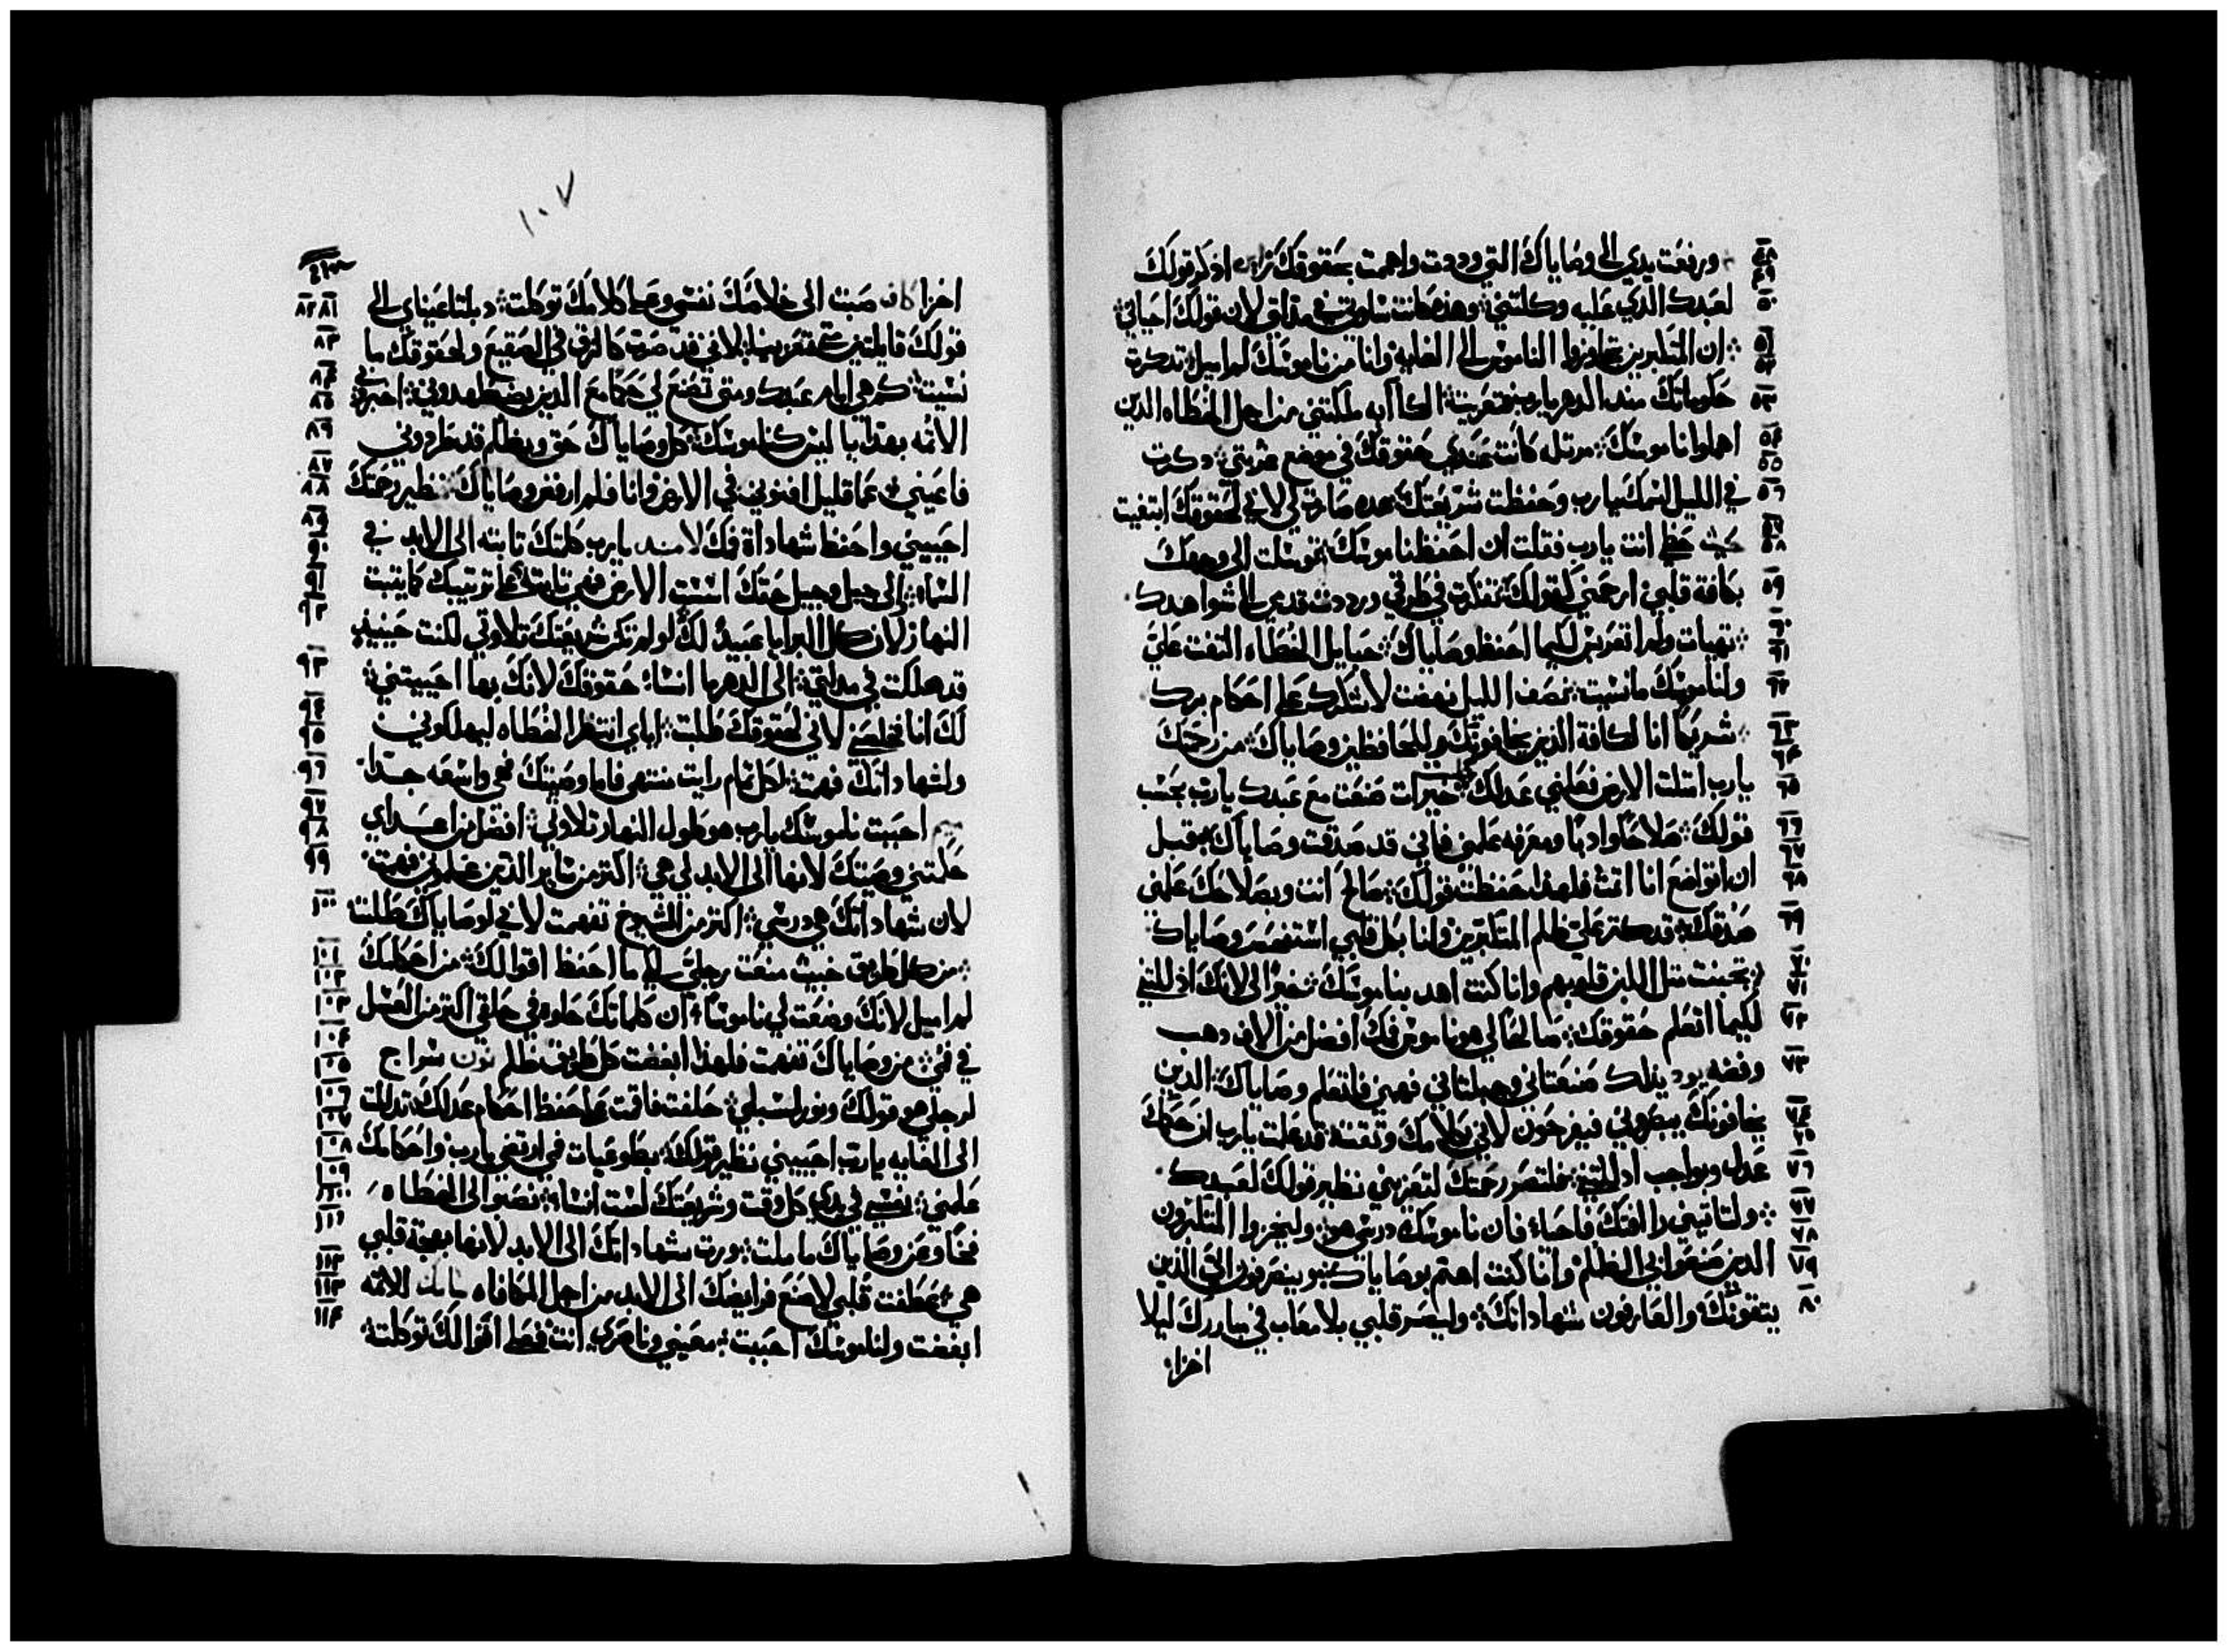 ٤٨ ورفعت يدي الى وصاياك التي وددت واهمت بحقوقك اذكر قولك
٤٩
٥٠ لعبدك الذي عليه وكلتني وهذه كانت سلوتي في مذلتي لان قولك احياني
٥١ ان المتكبرين تجاوزوا الناموس الى الغايه وانا من ناموسك لم اميل تذكرت
٥٢
٥٣ حكوماتك منذ الدهر يارب فتعزيت الكآبه ملكتني من اجل الخطاه الذين
٥٤ اهملوا ناموسك مرتله كانت عندي حقوقك في موضع غربتي ذكرت
٥٥
٥٦ في الليل اسمك يارب وحفظت شريعتك هده صارت لي لاني لحقوقك ابتغيت
٥٧ حظي انت يارب فقلت ان احفظ ناموسك توسلت الى وجهك
٥٨
٥٩ بكافة قلبي ارحمني كقولك تفكرت في طرقي ورددت قدمي الى شواهدك
٦٠ تهيات ولم اتقربس لكيما احفظ وصاياك حبايل الخطاه التفت علي
٦١
٦٢ ولناموسك ما نسيت نصف الليل نهضت لاشكرك على احكام برك
٦٣ شريكا انا لكافة الذين يخافونك وللحافظين وصاياك من رحمتك
٦٤
٦٥ يارب امتلت الارض فعلمني عدلك خيرات صنعت مع عبدك يارب بحسب
٦٦ قولك صلاحا وادبا ومعرفه علمني فاني قد صدقت وصاياك قبل
٦٧ ان اتواضع انا اتمت فلهذا حفظت قولك صالح انت وبصلاحك علمني
٦٨
٦٩ صدقك قد كثر علي ظلم المتكبرين وانا بكل قلبي استفحص وصاياك
٧٠ تجبنت مثل اللبن قلوبهم وانا كنت اهد بناموسك خيرا لي لانك اذللتني
٧١
٧٢ لكيما اتعلم حقوقك صالحا لي هو ناموس فمك افضل من الاف دهب
٧٣ وفضه يديك صنعتاني وجبلتاني فهمني فاتعلم وصاياك الذين
٧٤ يخافونك يبصروني فيفرحون لاني بكلامك وثقت قد علمت يارب ان حكمك
٧٥
٧٦ عدل وبواجب اذللتني فلتصر رحمتك لتعزيني نظير قولك لعبدك
٧٧ ولتاتيني رافتك فاحيا فان ناموسك درسي هو وليخزوا المتكبرون
٧٨
٧٩ الذين صنعوا بي الظلم وانا كنت اهتم بوصاياك ينصرفون الي الذين
٨٠ يتقونك والعارفون شهاداتك وليصر قلبي بلا معاب في مباررك ليلا
اخزا
١٠٧
٨١ ٨٢ اخزا صبت الى خلاصك نفسي وعلى كلامك توكلت دبلتا عيناي الى
٨٣ قولك قايلتين متى تعزينا لاني قد صرت كالزق في الصقيع ولحقوقك ما
٨٤ نسيت كم هي ايام عبدك ومتى تصنع لي حكما مع الذين يضطهدوني اخبروني
٨٥
٨٦ الاثمه بهذايا ليس كناموسك كل وصاياك حق وبظلم قد طردوني
٨٧ فاعيني عما قليل افنوني في الارض وانا فلم ارفض وصاياك نظير رحمتك
٨٨
٨٩ احييني واحفظ شهاداة فمك يارب كلمتك تابته الى الابد في
٩٠ السماء الى جيل وجيل حقك اسست الارض فهي تابته على ترتيبك كما يتبت
٩١
٩٢ النهار لان كل البرايا عبيد لك لو لم تكن شريعتك تلاوتي لكنت حينيد
٩٣ قد هلكت في مذلتي الى الدهر ما انسا حقوقك لانك بها احييتني
٩٤ لك انا فخلصني لاني لحقوقك طلبت اياي انتظرا الخطاه ليهلكوني
٩٥
٩٦ ولشهاداتك فهمت لكل تمام رايت منتهى فاما وصيتك فهي واسعه جدا
٩٧ احببت ناموسك يارب هو طول النهار تلاوتي افضل من اعداي
٩٨
٩٩ حكمتني وصيتك لانها الى الابد لي هي اكتر من ساير الذين علموني فهمت
١٠٠ لان شهاداتك هي درسي اكتر من الشيوخ تفهمت لاني لوصاياك طلبت
١٠١ من كل طريق خبيث منعت رجلي لكيما احفظ اقوالك من احكامك
١٠٢
١٠٣ لم اميل لانك وضعت لي ناموسا ان كلماتك حلوه في حلقي اكتر من العسل
١٠٤ في فمي من وصاياك تفهمت فلهذا ابغضت كل طريق ظلم سراج
١٠٥
١٠٦ لرجلي هو قولك ونور لسبلي حلفت فاقمت على حفظ احكام عدلك تذللت
١٠٧
١٠٨ الى الغايه يارب احييني نظير قولك بطوعيات فمي ارتضي يارب واحكامك
١٠٩ علمني نفسي في يدي كل وقت وشريعتك لست انساه نصبوا لي الخطاه
١١٠
١١١ فخا وعن وصاياك ما ملت ورتت شهاداتك الى الابد لانها بهجة قلبي
١١٢ هي عطفت قلبي لاصنع فرايضك الى الابد من اجل المكافاه الاثمه
١١٣
١١٤ ابغضت ولناموسك احببت معيني وناصري انت فعلى اقوالك توكلت